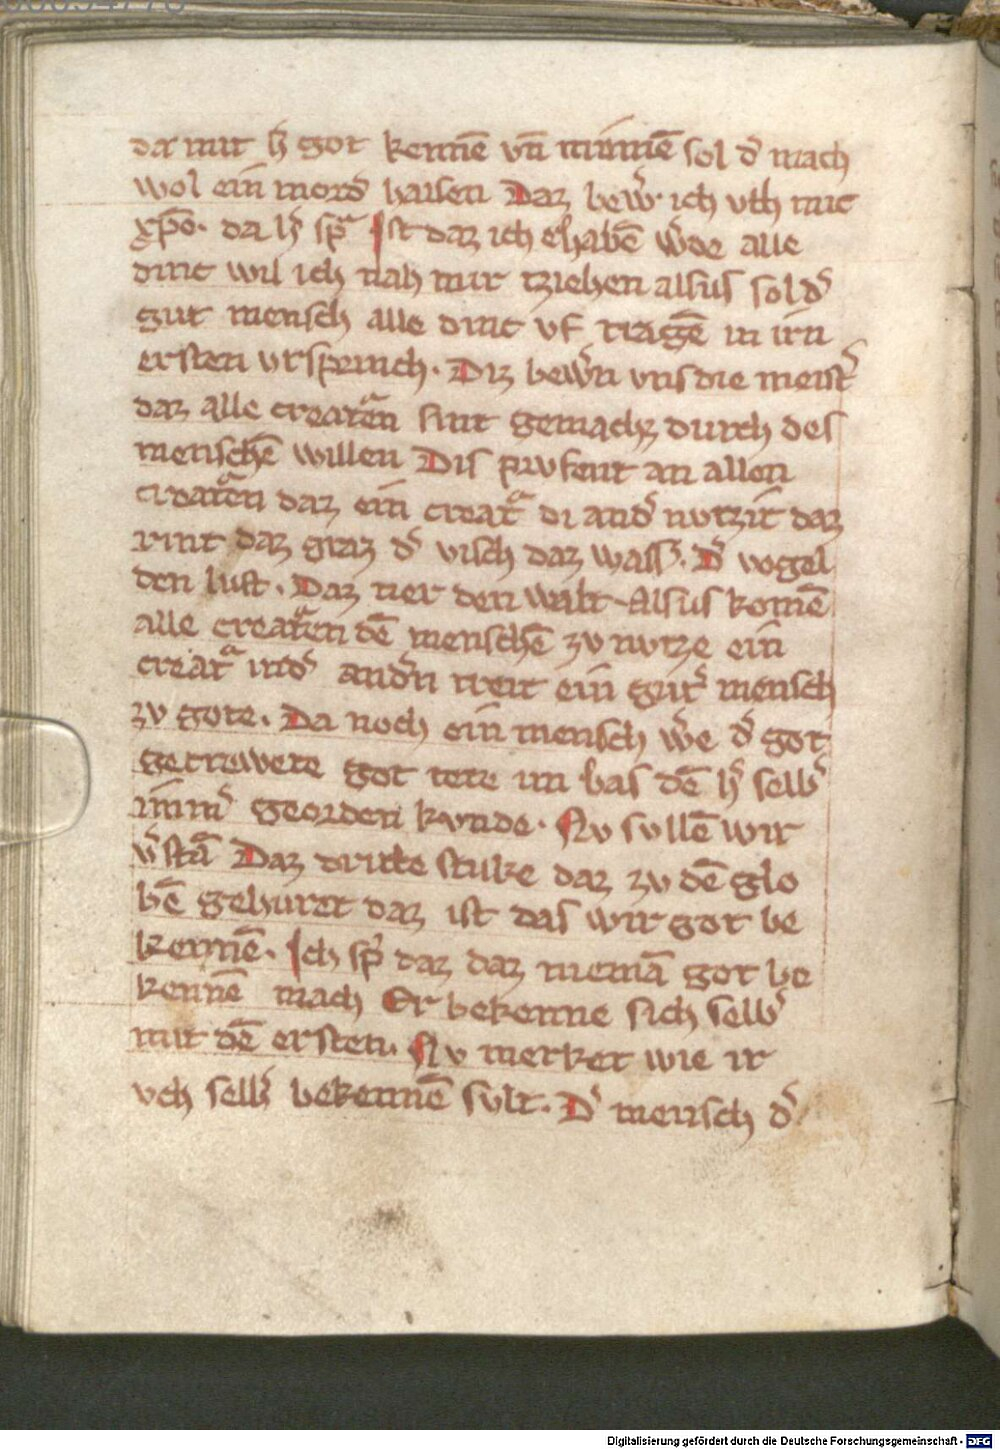 da mit h̄ got kennē vn̄ minnē sol d̓ mach
wol ein mord̓ haisen Daz bew̓ ich vch mit
xp̄o. da h̓ spͣ Ist daz ich erhabē w̓de alle
dinc wil ich nah mir tziehen alsus sol d̓
gut mensch alle dinc vf tragē in irn
ersten vrsprinch. Diz bew̓n vns die meist̓
daz alle creatͣen sint gemacht durch des
menschē willen Dis prvfent an allen
creatͣen daz ein creatͣ di and̓ nutzit daz
rint daz graz d̓ visch daz wass̓. D̓ vogel
den luft. Daz tier den walt. Alsus komē
alle creatͣen dē menschē zv nutze ein
creatͣ in d̓ and̓n treit ein gut̓ mensch
zv gote. Da noch ein mensch w̓e d̓ got
getruwete got tete im bas dē h̓ selb̓
nimm̓ georden kvnde. Nv svllē wir
v̓stā Daz dritte stuke daz zv dē glo
bē gehuret daz ist das wir got be
kennē. Ich sp̓ daz daz niemā got be
kennē mach Er bekenne sich selb̓
mit dē ersten. Nv merket wie ir
vch selb̓ bekennē svlt. D̓ mensch d̓
Digitalisierung gefördert durch die Deutsche Forschungsgemeinschaft - DFG